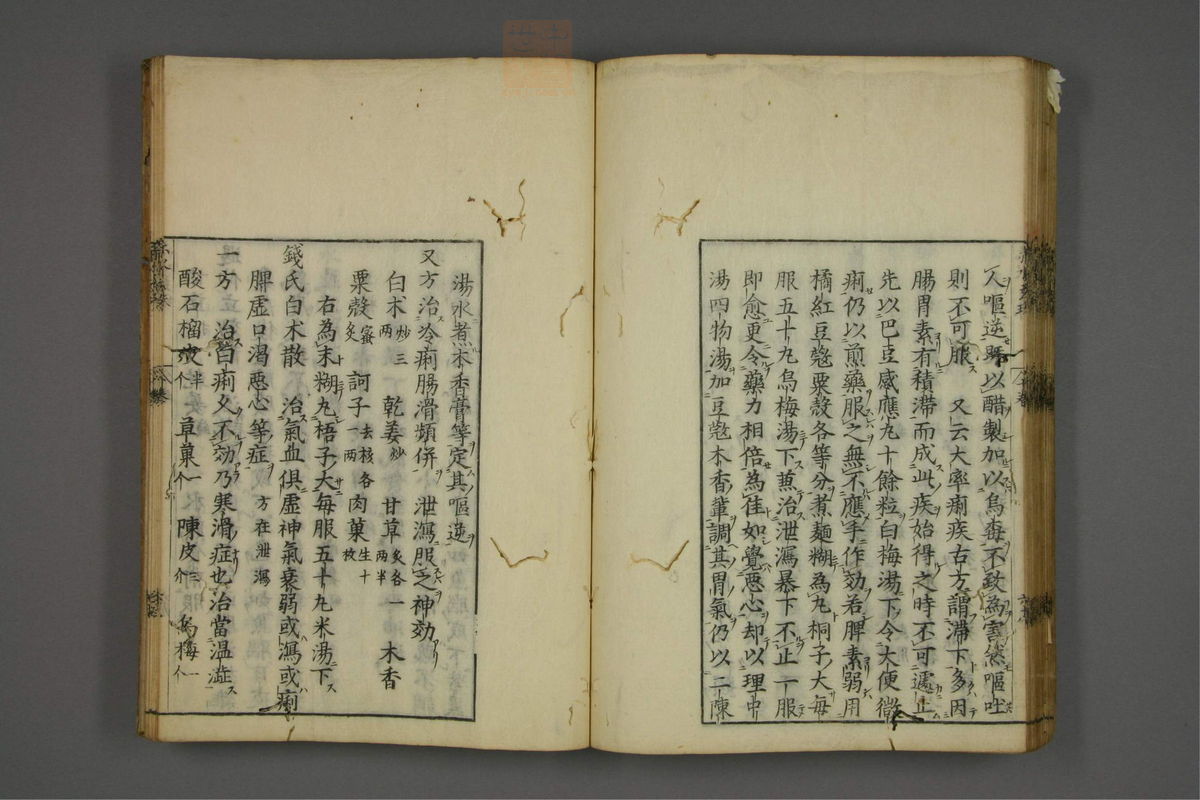 人嘔逆既以醋製加以烏梅不致為害然嘔吐
則不可服　又云大率痢疾古方謂滯下多因
腸胃素有積滯而成此疾始得之時不可遽止
先以巴豆感應丸十餘粒白梅湯下令大便微
痢仍以煎藥服之無不應手作効若脾素弱用
橘紅豆蔲粟殻各等分煮麵糊為丸桐子大毎
服五十丸烏梅湯下蒹治泄瀉暴下不止一服
即愈更令藥力相倍為佳如覺惡心却以理中
湯四物湯加豆蔲木香輩調其胃氣仍以二陳
湯水煮木香膏等定其嘔逆
又方治冷痢腸滑頻併　泄瀉服之神効
白朮炒三両　乾姜炒　甘草炙各一両半　木香
粟殻蜜炙　訶子去核各一両　肉菓生十枚
右為末糊丸梧子大毎服五十丸米湯下
錢氏白朮散　治氣血俱虛神氣衰弱或瀉或痢
脾虛口渴惡心等症　方在泄瀉
一方　治白痢久不効乃寒滑症也治當温澁
酸石榴皮半个　草菓一个　陳皮二个　烏梅一个